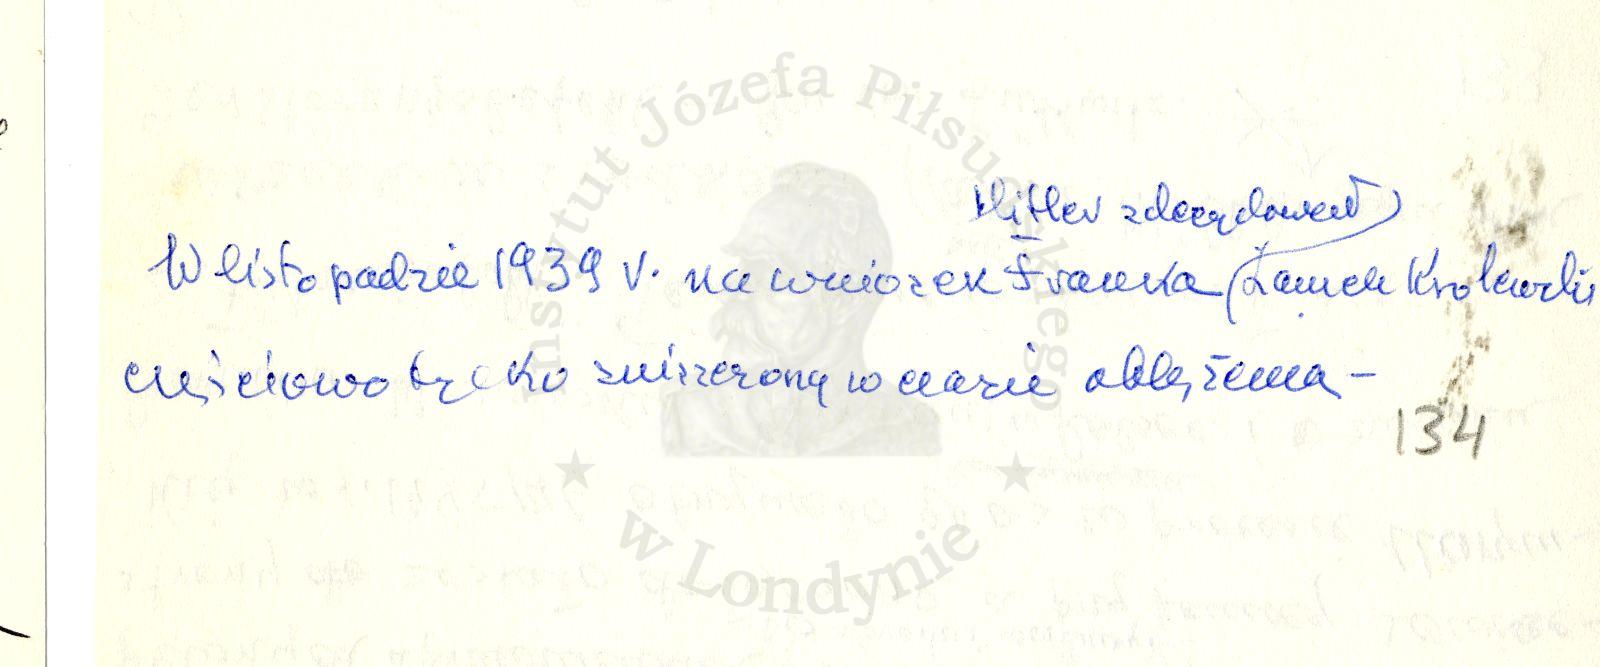 Instytut Józefa Piłsudskiego
w Londynie
Hitler zdecydował
W listopadzie 1939 r. na wniosek Franka (Zamek Królewski
częściowo tylko zniszczony w czasie oblężenia –
134